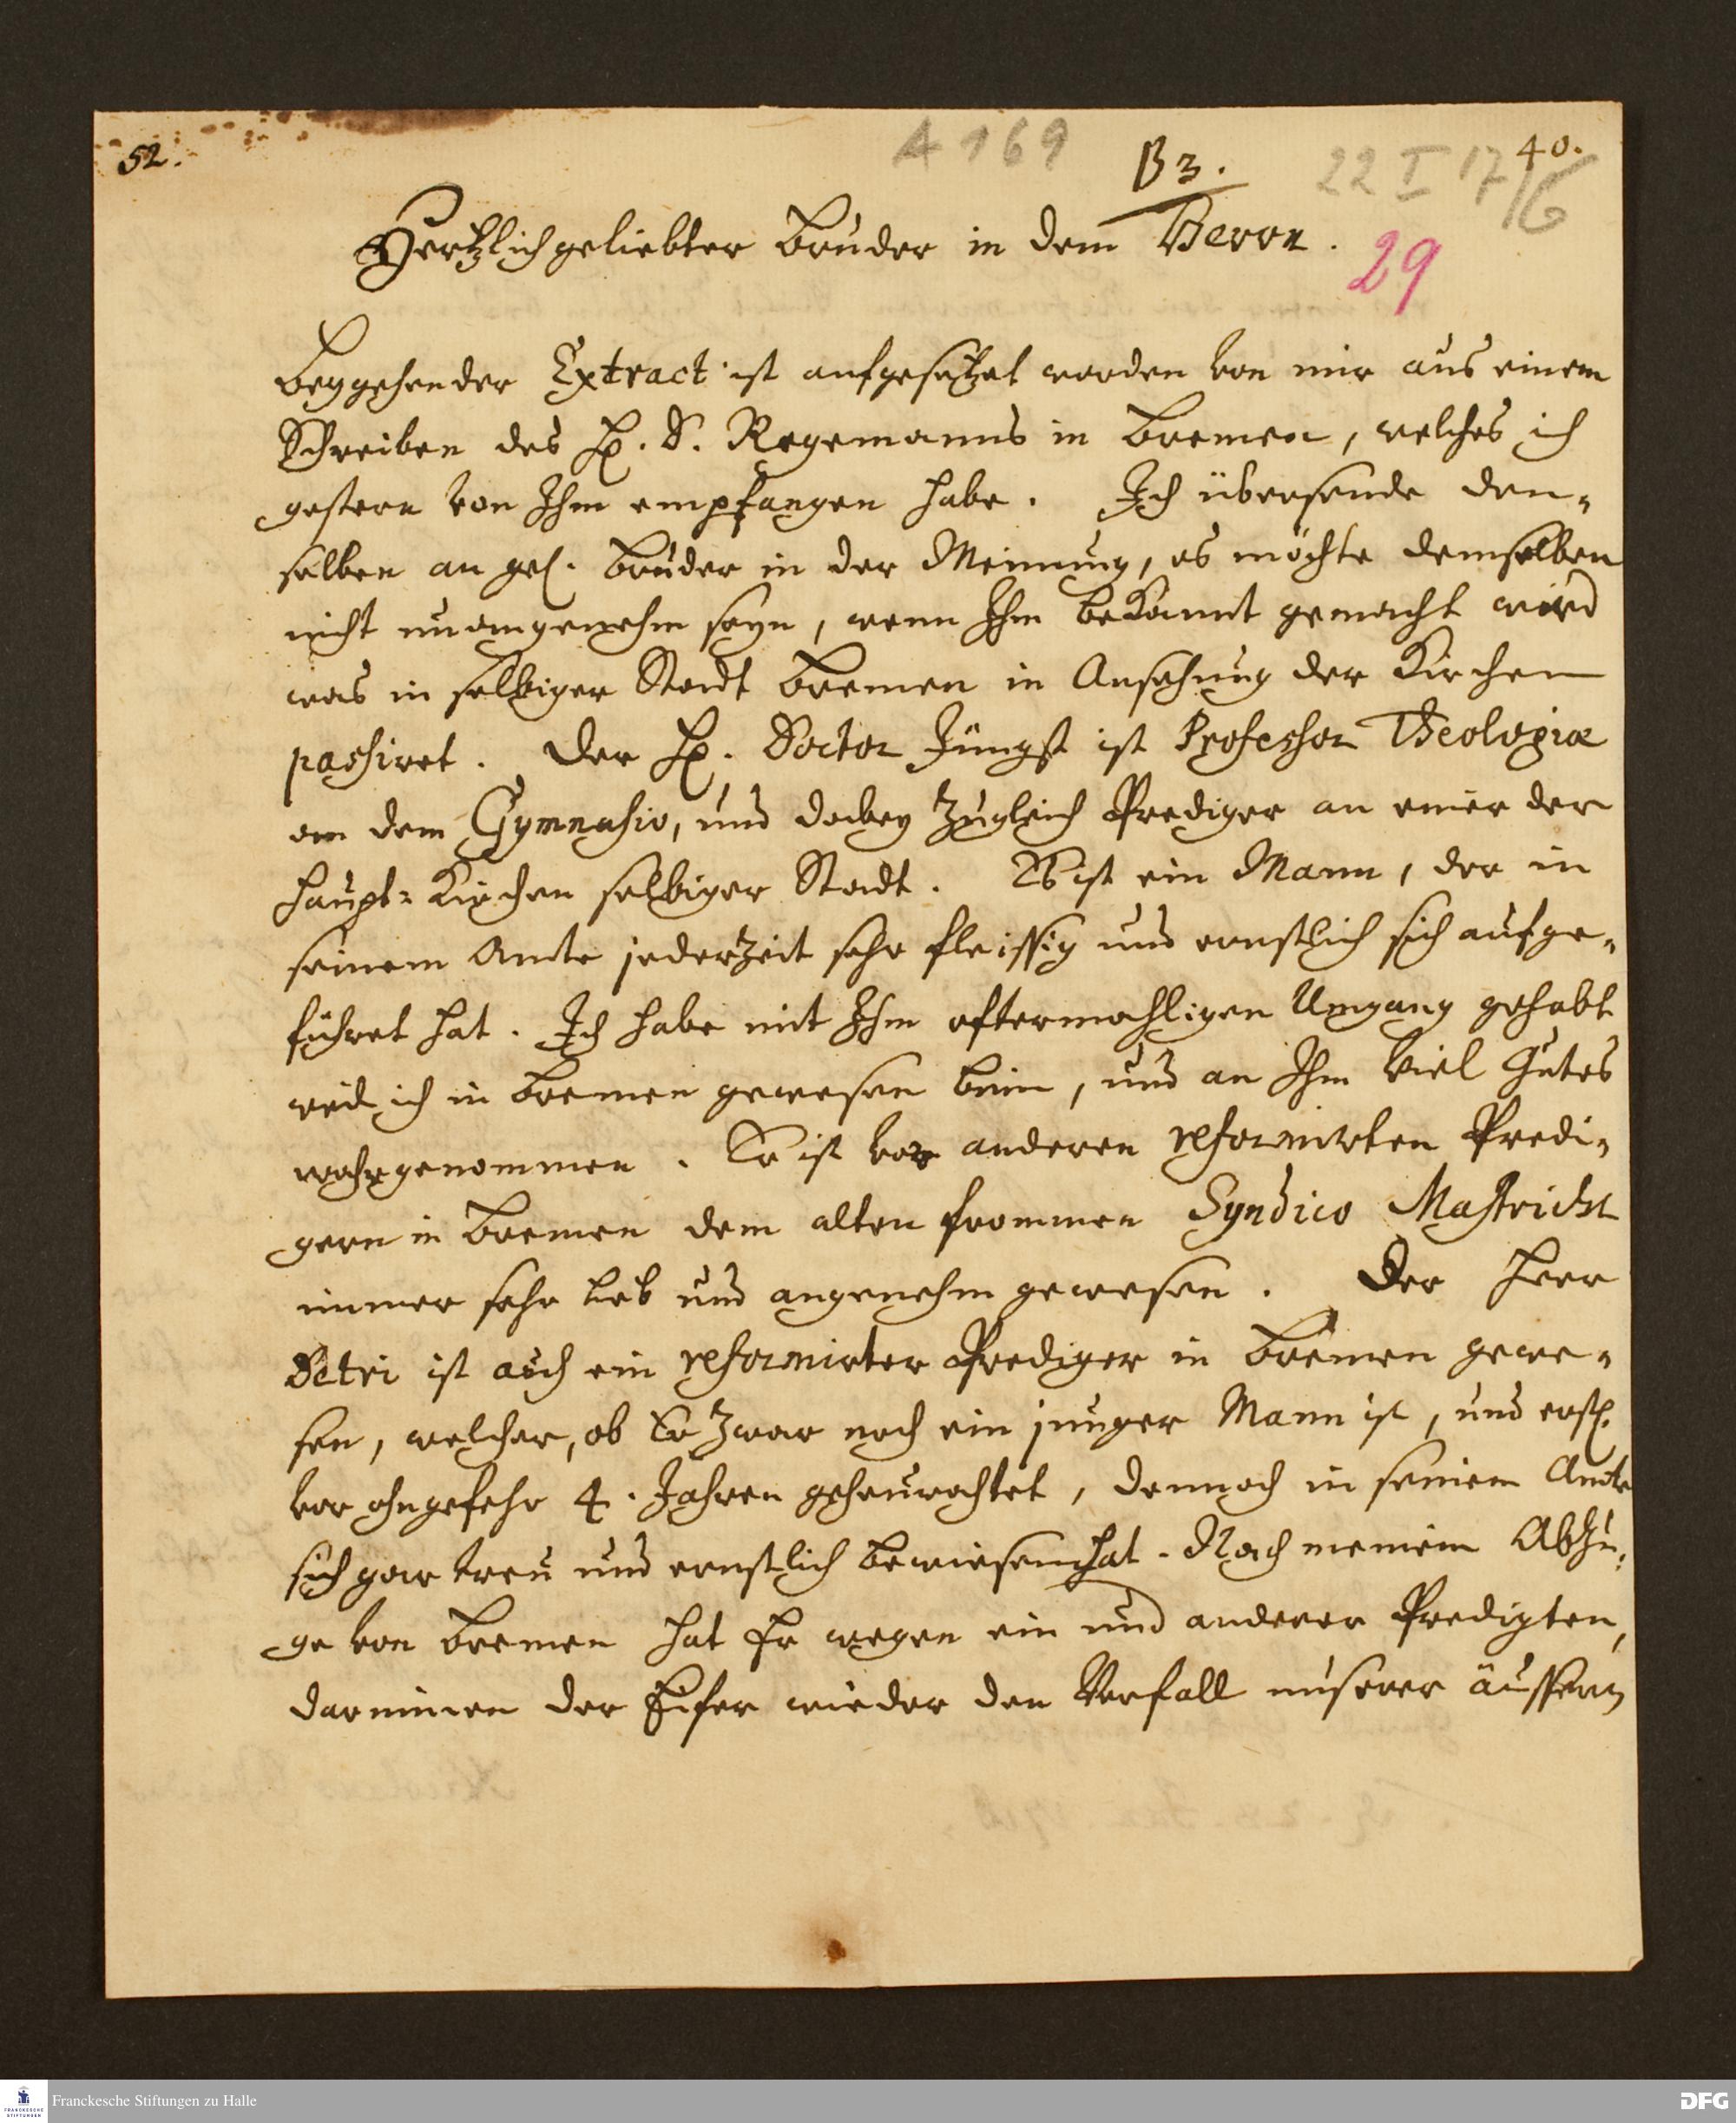 52.
A 169
B3.
40.
22 I 17/6
29
Hertzlich geliebter Bruder in dem Herrn.
Beygehender Extract ist aufgesetzet worden von mir aus einem
Schreiben des H. D. Regemanns in Bremen, welches ich
gestern von Ihm empfangen habe. Ich übersende den-
selben an gel. Bruder in der Meinung, es möchte demselben
nicht unangenehm seyn, wenn Ihm bekannt gemacht wird
was in selbiger Stadt Bremen in Ansehung der Kirchen
passiret. Der H. Doctor Jüngst ist Professor Theologiæ
an dem Gymnasio, und dabey zugleich Prediger an einer der
Haupt-Kirchen selbiger Stadt. Es ist ein Mann, der in
seinem Amte jederzeit sehr fleissig und ernstlich sich aufge-
führet hat. Ich habe mit Ihm oftermahligen Umgang gehabt
weil ich in Bremen gewesen bin, und an Ihm viel Gutes
wahrgenommen. Er ist vor anderen reformirten Predi-
gern in Bremen dem alten frommen Syndico Mastricht
immer sehr lieb und angenehm gewesen. Der Herr
Detri ist auch ein reformirter Prediger in Bremen gewe-
sen, welcher, ob Er zwar noch ein junger Mann ist, und erstl.
vor ohngefehr 4. Jahren geheurathet, dennoch in seinem Amte
sich gar treu und ernstlich bewiesen hat. Nach meinem Abzu-
ge von Bremen hat Er wegen ein und anderer Predigten,
darinnen der Eifer wieder den Verfall unserer äussern
Franckesche Stiftungen zu Halle
FRANCKESCHE STIFTUNGEN
DFG